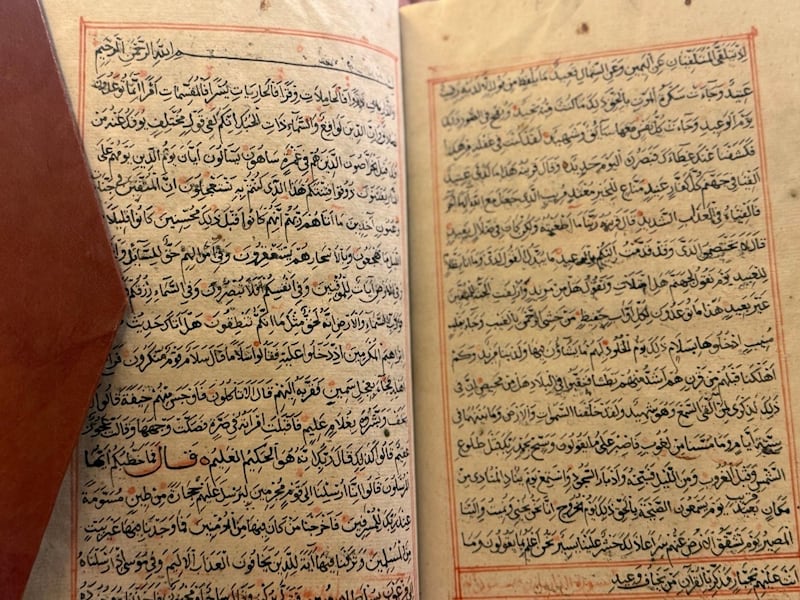 اذ يتلقى المتلقيان عن اليمين وعن الشمال قعيد ما يلفظ من قول الا لديه رقيب
عتيد وجاءت سكرة الموت بالحق ذلك ما كنت منه تحيد ونفخ في الصور ذلك
يوم الوعيد وجاءت كل نفس معها سائق وشهيد لقد كنت في غفلة من هذا
فكشفنا عنك غطاءك فبصرك اليوم حديد وقال قرينه هذا ما لدي عتيد
القيا في جهنم كل كفار عنيد مناع للخير معتد مريب الذي جعل مع الله الها آخر
فالقياه في العذاب الشديد قال قرينه ربنا ما اطغيته ولكن كان في ضلال بعيد
قال لا تختصموا لدي وقد قدمت اليكم بالوعيد ما يبدل القول لدي وما انا بظلام
للعبيد يوم نقول لجهنم هل امتلات وتقول هل من مزيد وازلفت الجنة للمتقين
غير بعيد هذا ما توعدون لكل اواب حفيظ من خشي الرحمن بالغيب وجاء بقلب
منيب ادخلوها بسلام ذلك يوم الخلود لهم ما يشاؤن فيها ولدينا مزيد وكم
اهلكنا قبلهم من قرن هم اشد منهم بطشا فنقبوا في البلاد هل من محيص ان في
ذلك لذكرى لمن القى السمع وهو شهيد ولقد خلقنا السموات والارض وما بينهما في
ستة ايام وما مسنا من لغوب فاصبر على ما يقولون وسبح بحمد ربك قبل طلوع
الشمس وقبل الغروب ومن الليل فسبحه وادبار السجود واستمع يوم يناد المناد من
مكان قريب يوم يسمعون الصيحة بالحق ذلك يوم الخروج انا نحن نحيي ونميت والينا
المصير يوم تشقق الارض عنهم سراعا ذلك حشر علينا يسير نحن اعلم بما يقولون وما
انت عليهم بجبار فذكر بالقرآن من يخاف وعيد
بسم الله الرحمن الرحيم
والذاريات ذروا فالحاملات وقرا فالجاريات يسرا فالمقسمات امرا انما توعدون
لصادق وان الدين لواقع والسماء ذات الحبك انكم لفي قول مختلف يؤفك عنه من
افك قتل الخراصون الذين هم في غمرة ساهون يسالون ايان يوم الدين يوم هم على
النار يفتنون ذوقوا فتنتكم هذا الذي كنتم به تستعجلون ان المتقين في جنات
وعيون آخذين ما آتاهم ربهم انهم كانوا قبل ذلك محسنين كانوا قليلا من
الليل ما يهجعون وبالاسحار هم يستغفرون وفي اموالهم حق للسائل
وفي الارض آيات للموقنين وفي انفسكم افلا تبصرون وفي السماء رزقكم
فورب السماء والارض انه لحق مثل ما انكم تنطقون هل اتاك حديث
ابراهيم المكرمين اذ دخلوا عليه فقالوا سلاما قال سلام قوم منكرون فراغ
اهله فجاء بعجل سمين فقربه اليهم قال الا تاكلون فاوجس منهم خيفة قالوا لا
تخف وبشروه بغلام عليم فاقبلت امراته في صرة فصكت وجهها وقالت عجوز
عقيم قالوا كذلك قال ربك انه هو الحكيم العليم قال فما خطبكم ايها
المرسلون قالوا انا ارسلنا الى قوم مجرمين لنرسل عليهم حجارة من طين مسومة
عند ربك للمسرفين فاخرجنا من كان فيها من المؤمنين فما وجدنا فيها غير بيت
من المسلمين وتركنا فيها آية للذين يخافون العذاب الاليم وفي موسى اذ ارسلناه
الى فرعون بسلطان